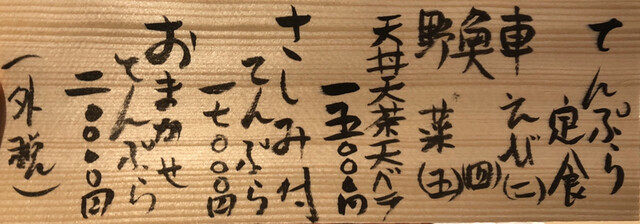 てんぷら定食
車えび(二)
魚(四)
野菜(五)
天丼天茶天バラ
一五〇〇〇円
さしみ付
てんぷら
一七〇〇〇円
おまかせ
てんぷら
二〇〇〇〇円
(外税)